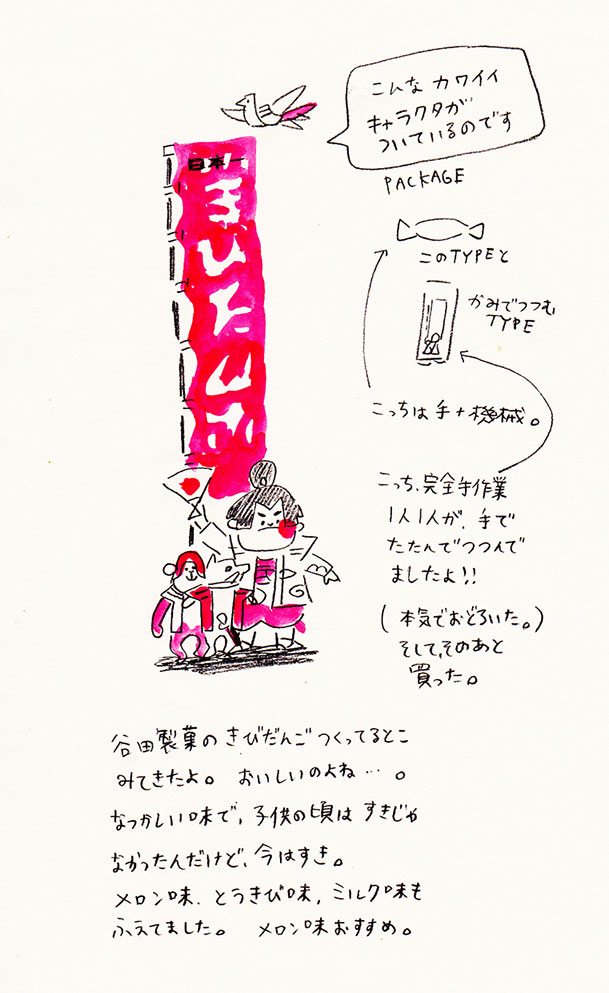 こんな カワイイ
キャラクタが
ついているのです
PACKAGE
このTYPEと
かみでつつむ
TYPE
こっちは 手+機械。
こっち、完全手作業
1人1人が、手で
たたんでつつんで
ましたよ!!
(本気でおどろいた。)
そして、そのあと
買った。
日本一
きびだんご
谷田製菓の きびだんご つくってるとこ
みてきたよ。 おいしいのよね…。
なつかしい味で、子供の頃は すきじゃ
なかったんだけど、今はすき。
メロン味、とうきび味、ミルク味も
ふえてました。 メロン味おすすめ。